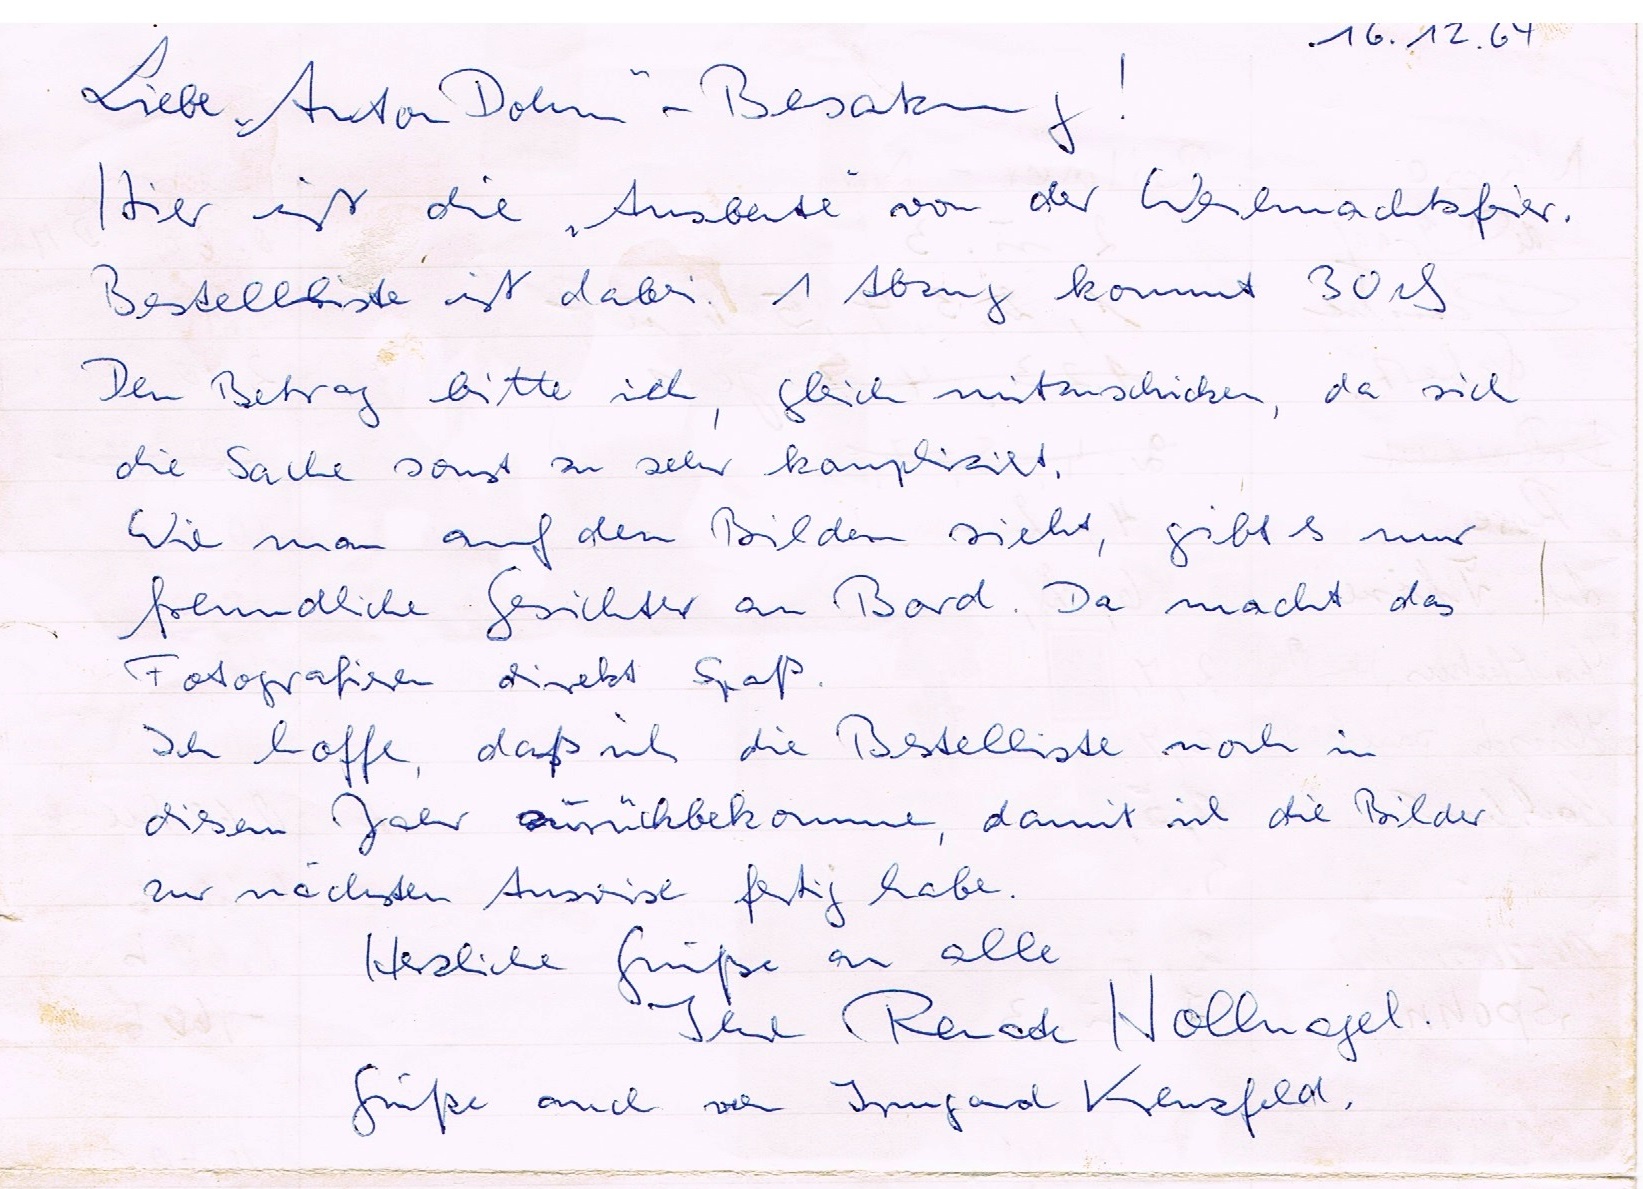 16.12.64
Liebe „Anton Dohrn“-Besatzung!
Hier ist die „Ausbeute“ von der Weihnachtsfeier.
Bestellliste ist dabei. 1 Abzug kommt 30 ₰
Den Betrag bitte ich, gleich mitzuschicken, da sich
die Sache sonst zu sehr kompliziert.
Wie man auf den Bildern sieht, gibt es nur
freundliche Gesichter an Bord. Da macht das
Fotografieren direkt Spaß.
Ich hoffe, daß ich die Bestelliste noch in
diesem Jahr zurückbekomme, damit ich die Bilder
zur nächsten Ausreise fertig habe.
Herzliche Grüße an alle
Ihre Renate Hollnagel.
Grüße auch von Irmgard Kreuzfeld.